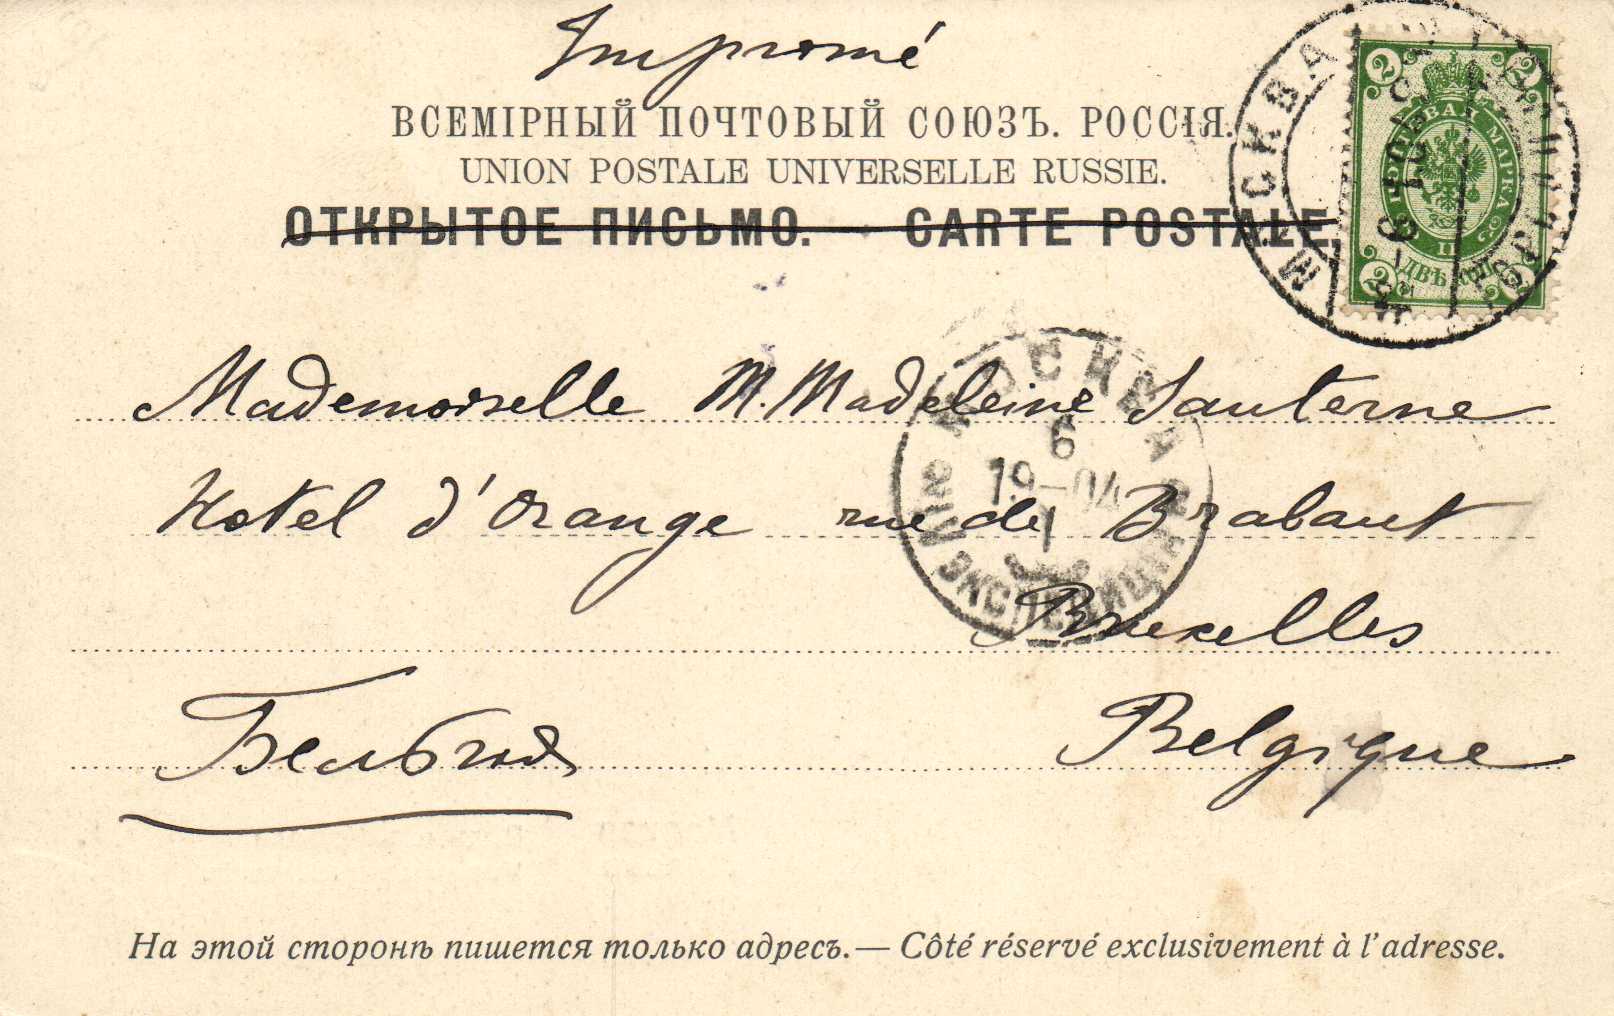 Impromé
ВСЕМІРНЫЙ ПОЧТОВЫЙ СОЮЗЪ. РОССІЯ.
UNION POSTALE UNIVERSELLE RUSSIE.
ОТКРЫТОЕ ПИСЬМО. CARTE POSTALE.
МОСКВА
2 2
ПОЧТОВАЯ МАРКА
ДВѢ КОП.
2 2
Mademoiselle M. Madeleine Sauterne
МОСКВА
6
19-04
1
Hotel d'Orange rue de Brabant
Bruxelles
Бельгія
Belgique
На этой сторонѣ пишется только адресъ.— Côté réservé exclusivement à l'adresse.